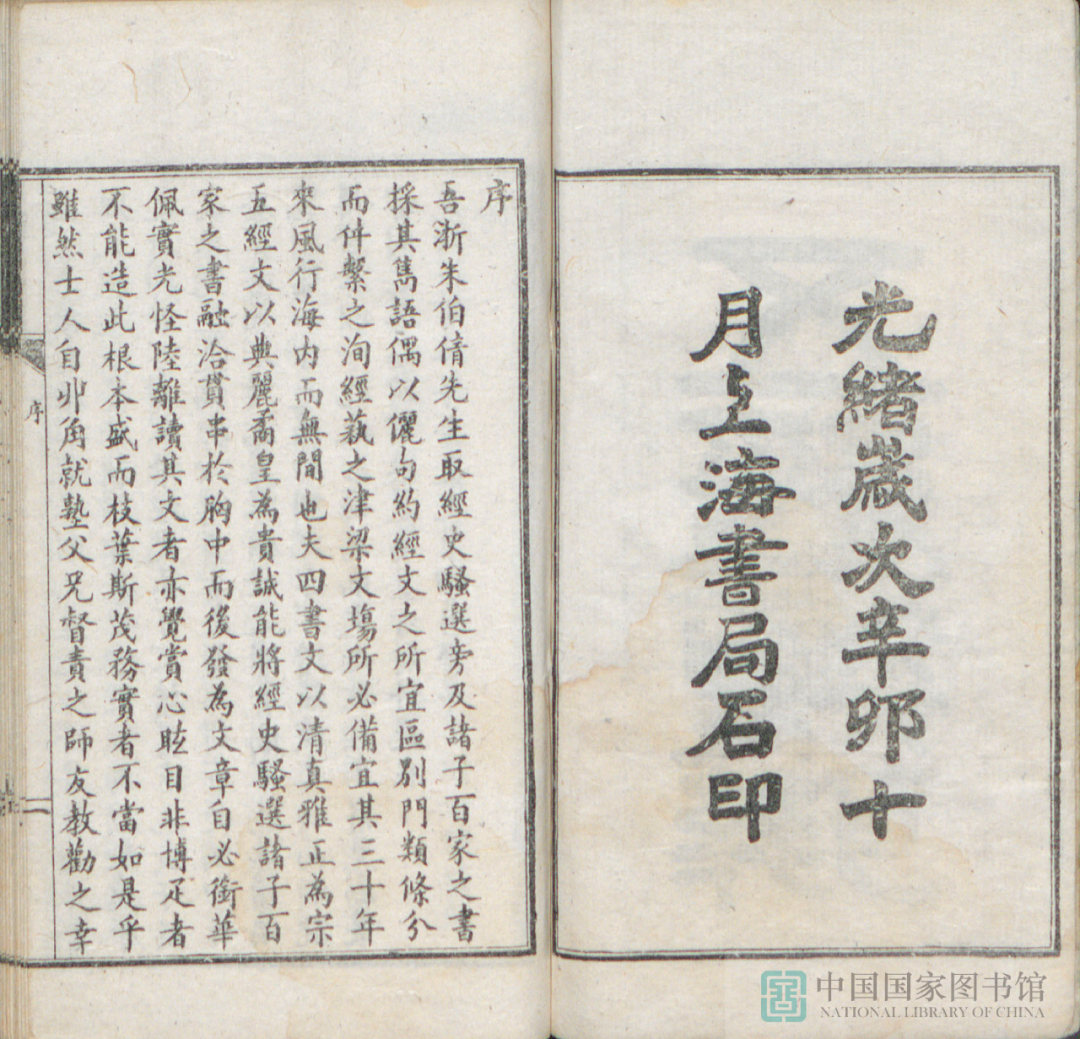 光緒歲次辛卯十
月上海書局石印
序
吾浙朱伯倩先生取經史騷選旁及諸子百家之書
採其雋語偶以儷句約經文之所宜區別門類條分
而件繫之洵經蓺之津梁文塲所必備宜其三十年
來風行海内而無間也夫四書文以清真雅正為宗
五經文以典麗矞皇為貴誠能將經史騷選諸子百
家之書融洽貫串於胸中而後發為文章自必銜華
佩實光怪陸離讀其文者亦覺賞心眩目非博足者
不能造此根本盛而枝葉斯茂務實者不當如是乎
雖然士人自丱角就塾父兄督責之師友教勸之幸
序
二
中国国家图书馆
NATIONAL LIBRARY OF CHINA